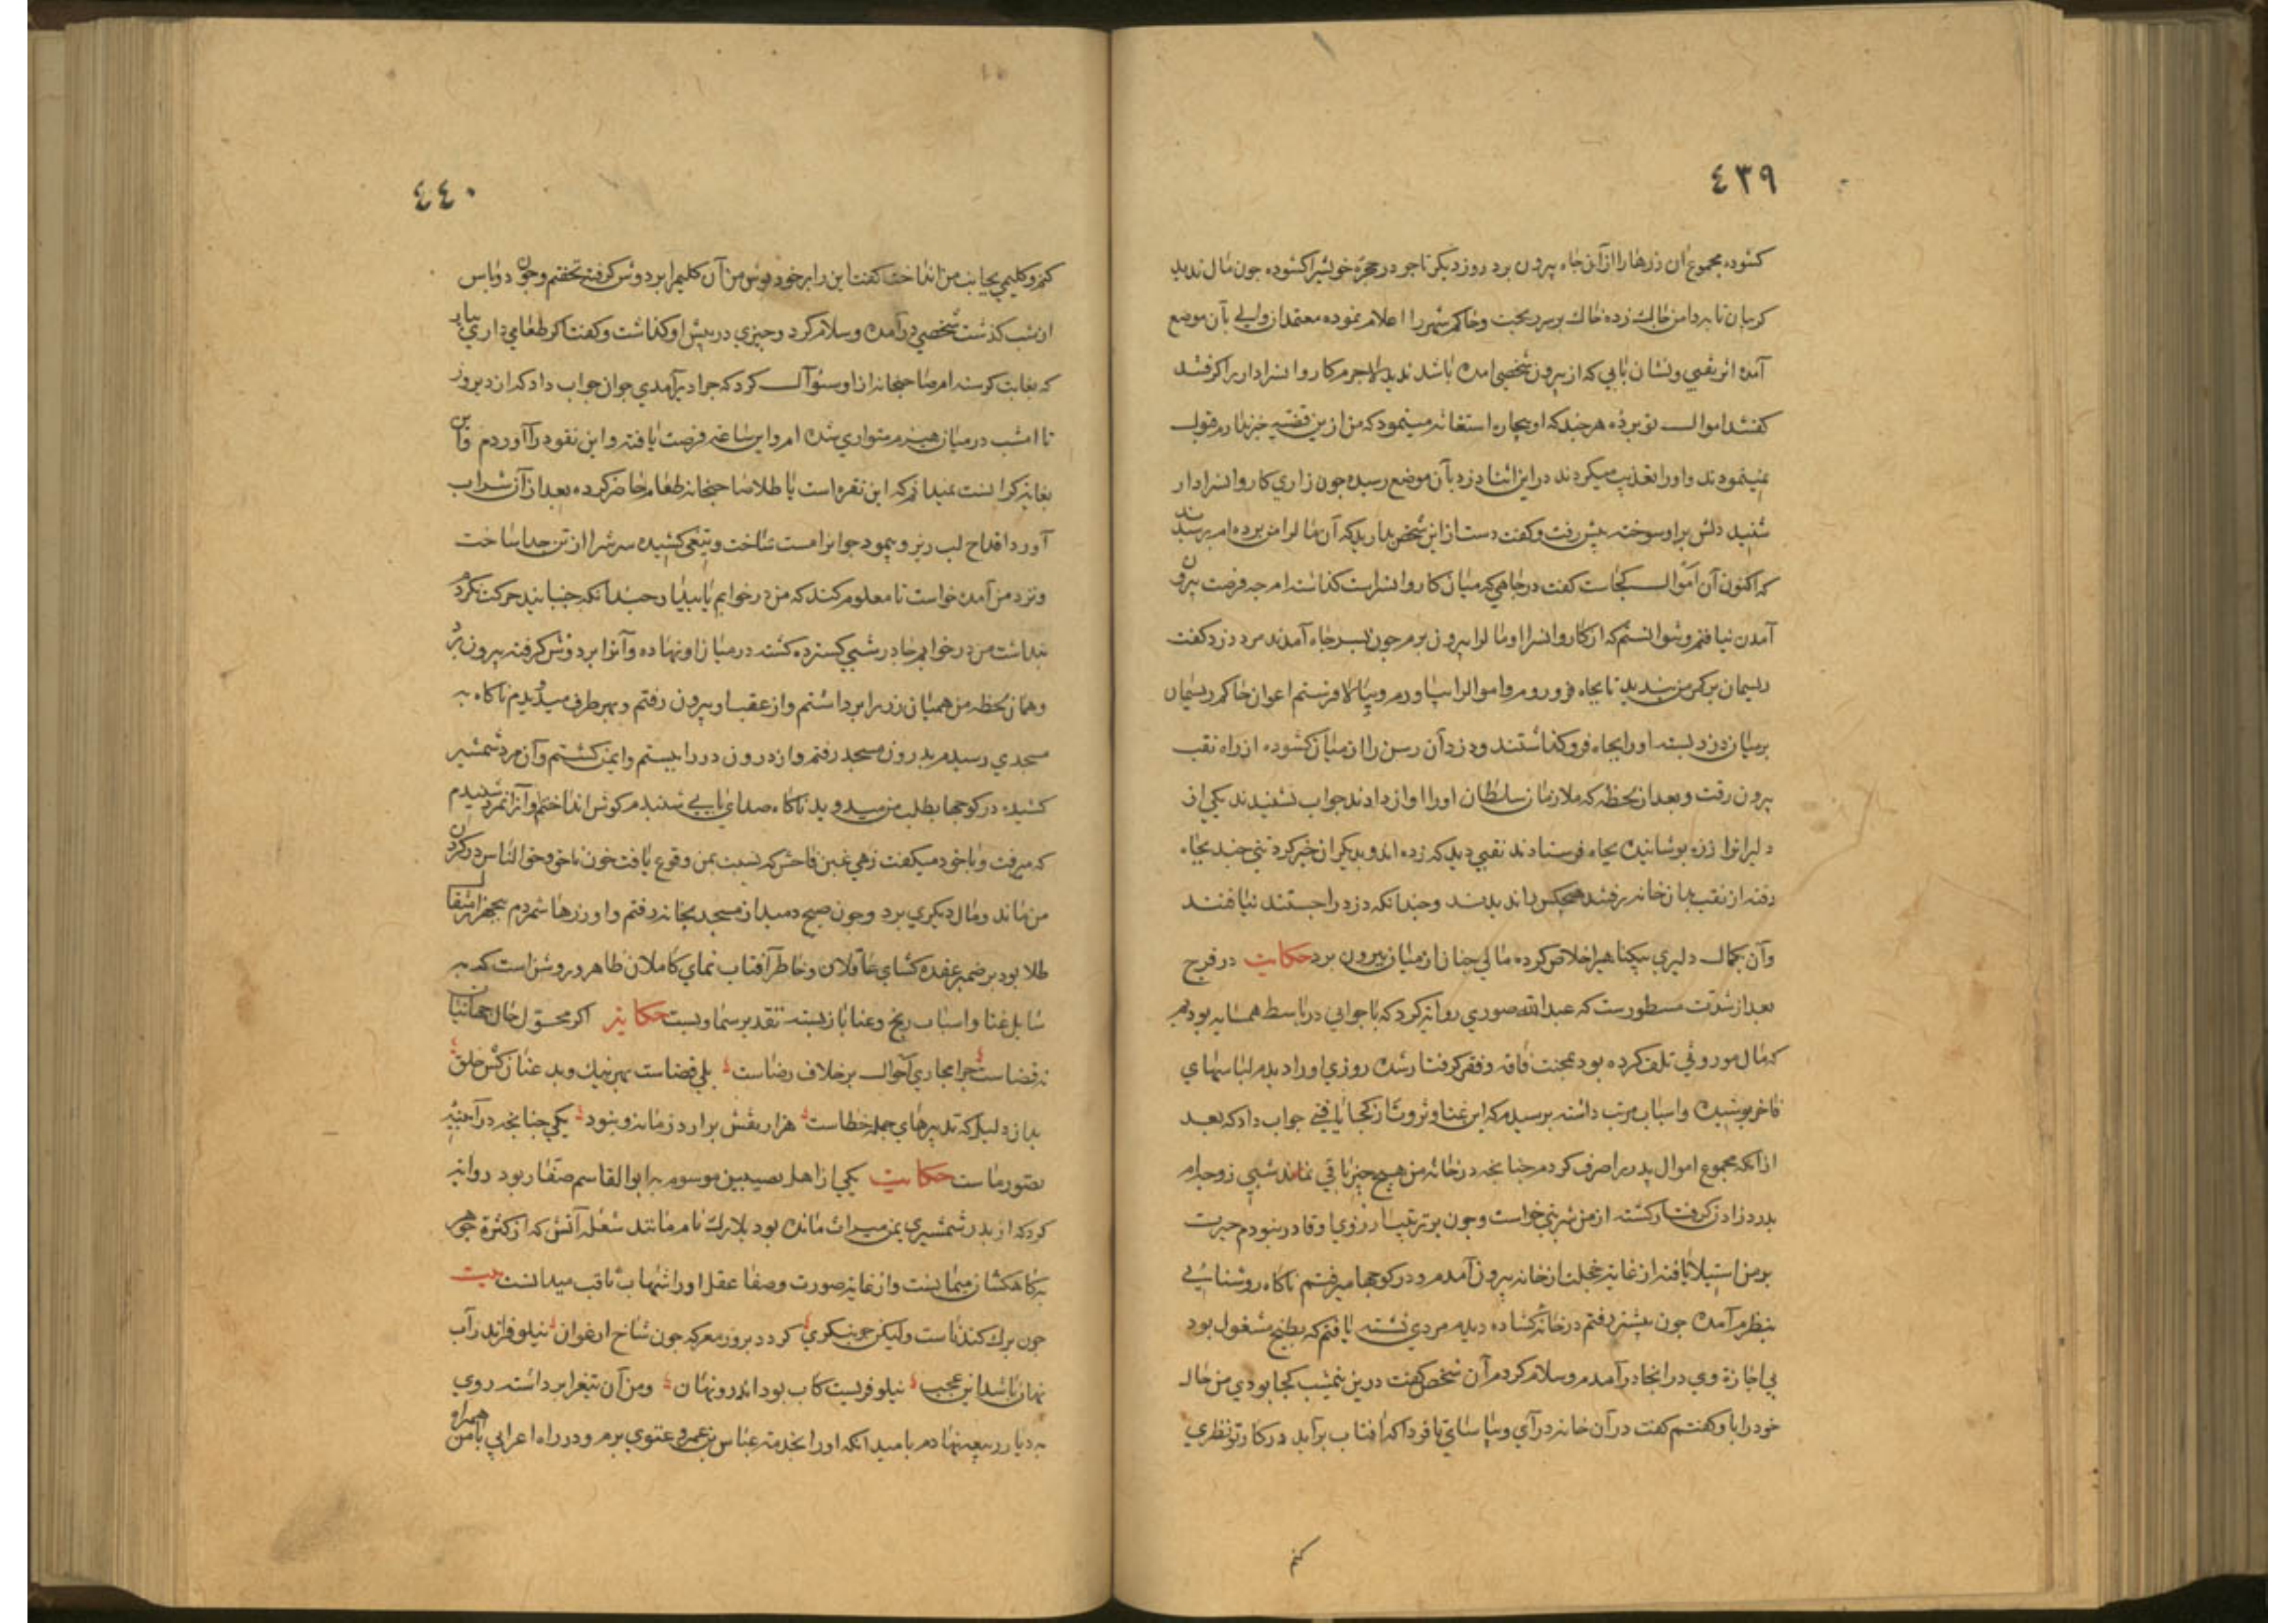 ٤٣٩
كشوده مجموع آن زرها را از آن چاه بيرون برد روز ديكر تاجر در حجرهٔ خويشرا كشوده چون مال نديد
كريبان تا بدامن چاك زده خاك بر سر ريخت و حاكم شهر را اعلام نموده معتمد از والي بآن موضع
آمده اثر نقبي و نشان پايي كه از بيرون شخصي آمده باشد نديد لاجرم كاروانسرادار را كرفتند
كفتند اموال تو برده هر چند كه او بيچاره استغاثه مينمود كه من ازين قضيه خبر ندارم قبول
نمينمودند و او را تعذيب ميكردند در اين اثنا دزد بآن موضع رسيده چون زاري كاروانسرادار
شنيد دلش بر او سوخته پيش رفت و كفت دست از اين شخص بداريد كه آن مال را من برده ام پرسيدند
كه اكنون آن اموال كجاست كفت در چاهي كه ميان كاروانسراست كذاشته ام چه فرصت بيرون
آمدن نيافتم و نتوانستم كه از كاروانسرا او مال را بيرون برم چون بسر چاه آمدند مرد دزد كفت
ريسمان بر كمر من بنديد تا بچاه فرو روم و اموال را بياورم و ببالا فرستم اعوان حاكم ريسمان
بر ميان دزد بسته او را بچاه فرو كذاشتند و دزد آن رسن را از ميان كشوده از راه نقب
بيرون رفت و بعد از لحظه كه ملازمان سلطان او را اواز دادند جواب نشنيدند يكي از
دليران را زره پوشانيده بچاه فرستادند نقبي ديد كه زده اند و ديكران خبر كرد تني چند بچاه
رفته از نقب بدان خانه رفتند هيچكس را نديدند و چندانكه دزد را جستند نيافتند
و آن بكمال دليري بيكناهي را خلاص كرده مالي چنان از ميان بيرون برد حكايت در فرج
بعد از شدت مسطورست كه عبدالله صوري روايت كرد كه با جواني در باسط همسايه بوديم
كه مال موروثي تلف كرده بود بمحنت فاقه و فقر كرفتار شده روزي او را ديدم لباسهاي
فاخر پوشيده و اسباب مرتب داشته پرسيدم كه اين غنا و ثروت از كجا يافتي جواب داد كه بعد
از آنكه مجموع اموال پدر را صرف كردم چنانچه در خانه من هيچ چيز باقي نماند شبي زوجه ام
بدرد زادن كرفتار كشته از من شربتي خواست و چون بر ترتيب آرزوي او قادر نبودم حيرت
بر من استيلا يافته از غايت خجلت از خانه بيرون آمدم و در كوچها ميرفتم ناكاه روشنايي
بنظرم آمده چون پيشتر رفتم در خانه كشاده ديدم مردي نشسته يافتم كه بطبخ مشغول بود
بي اجازهٔ وي در آنجا در آمدم و سلام كردم آن شخص كفت درين نيمشب كجا بودي من حال
خود را با و كفتم كفت در آن خانه در آي و بياساي تا فردا كه آفتاب برآيد در كار تو نظري
كنم
٤٤٠
كنم و كليمي بجانب من انداخت كفت اين را بر خود پوش من آن كليم را بر دوش كرفته نخفتم و چون دو پاس
از شب كذشت شخصي در آمده و سلام كرد و چيزي در پيش او كذاشت و كفت اكر طعامي داري بيار
كه بغايت كرسنه ام صاحبخانه از او سئوال كرد كه چرا دير آمدي جوان جواب داد كه از ديروز
تا امشب در ميان هيزم متواري شده ام و اين ساعت فرصت يافته و اين نقود را آوردم و اين
بغايت كرانست نميدانم كه اين نقره است يا طلا صاحبخانه طعام حاضر كرده بعد از آن شراب
آورد اقداح لب ريز و پيموده جوانرا مست ساخت و تيغي كشيده سرش را از تن جدا ساخت
و نزد من آمده خواست تا معلوم كند كه من در خوابم يا بيدار و چندانكه جنبانيد حركت نكردم
پنداشت من در خوابم چادر شبي كسترده كشته در ميان او نهاده و آنرا بر دوش كرفته بيرون برد
و همان لحظه من هميان زر را برداشتم و از عقب او بيرون رفتم و بهر طرف ميدويدم ناكاه به
مسجدي رسيدم بدرون مسجد رفتم و از درون در را بستم و ايمن كشتم و آن مرد شمشير
كشيده در كوچها بطلب من ميدويد ناكاه صداي پايي شنيدم كوش انداختم و از آنمرد شنيدم
كه ميرفت و با خود ميكفت زهي غبن فاحش كه نسبت بمن وقوع يافت خون ناحق و حق الناس در كردن
من ماند و مال ديكري برد و چون صبح دميد از مسجد بخانه رفتم و او زرها شمردم پنجهزار مثقال
طلا بود بر ضمير عقده كشاي عاقلان و خاطر آفتاب نماي كاملان ظاهر و روشن است كه به
شابل غنا و اسباب رنج و عنا باز بسته تقدير سماويست حكايت اكر محول حال جهانيان
نه قضاست چرا مجاري احوال بر خلاف رضاست بلي قضاست بهر نيك و بد عنان كش خلق
بدان دليل كه تدبيرهاي جمله خطاست هزار نقش برارد زمانه و نبود يكي چنانچه در آيينهٔ
تصور ماست حكايت يكي از اهل نصيبين موسوم به ابو القاسم صفار بود روايت
كرد كه از پدر شمشيري بمن ميراث مانده بود بلارك نام مانند شعله آتش كه از كثرة جوهر
به كاهكشان ميمانست و از غايت صورت و صفا عقل او را شهاب ثاقب ميدانست بيت
چون برك كندناست وليكن چو بنكري كردد بروز معركه چون شاخ ارغوان نيلوفر اندر آب
نهان باشد اين عجب نيلوفريست كاب بود اندرو نهان و من آن تيغ را برداشته روي
به ديار ربيعه نهادم باميد آنكه او را بخدمت عباس بن عمرو غنوي برم و در راه اعرابي با من همراه